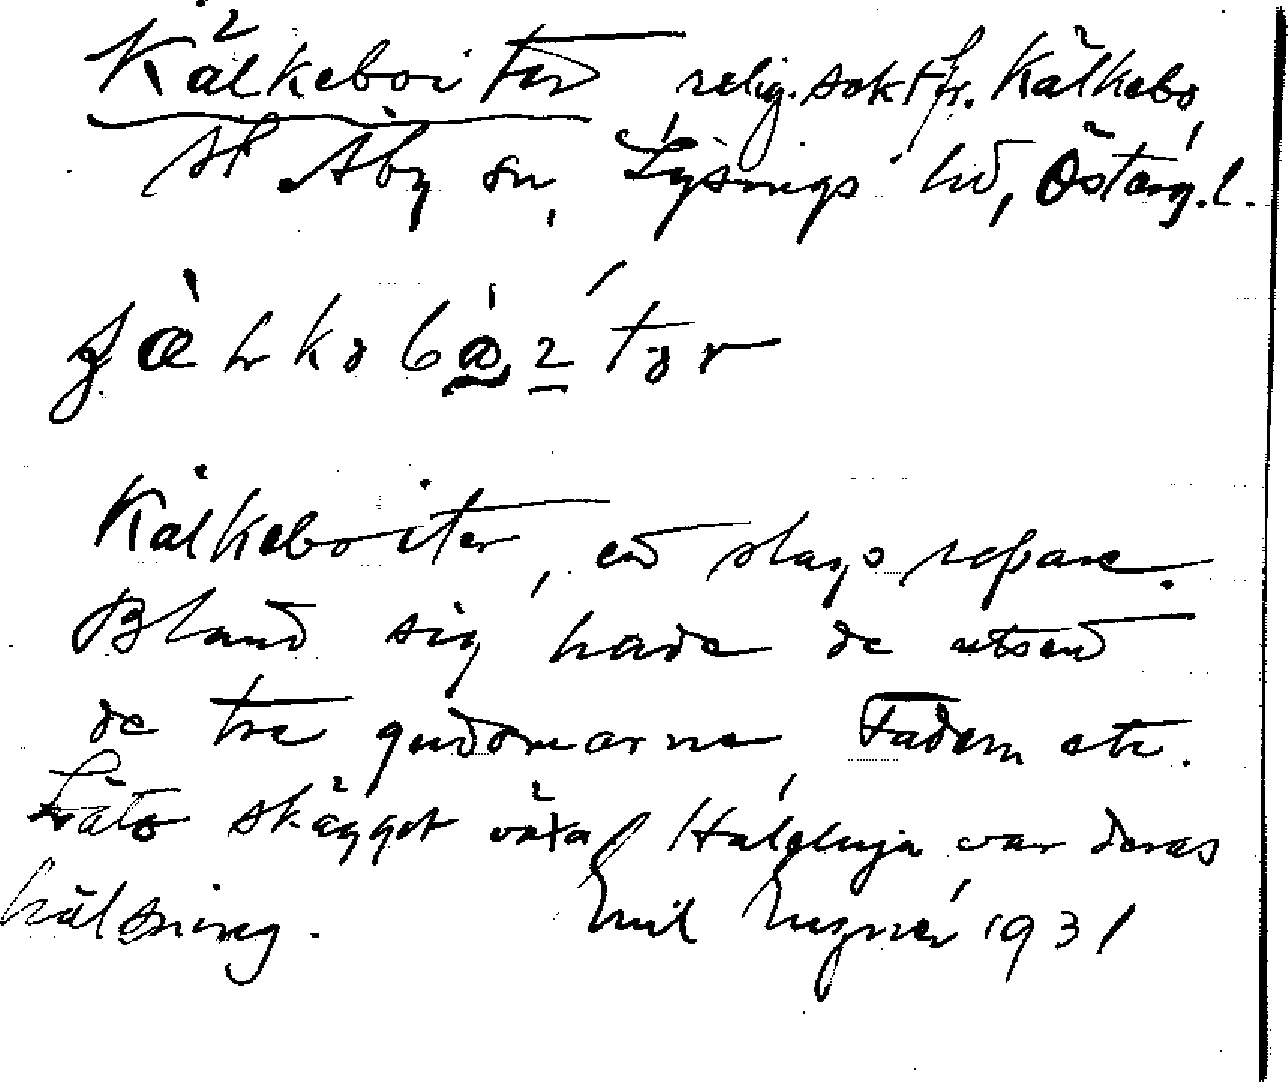 Kälkeboiter relig. sekt fr. Kälkebo,
St Åby sn, Lysings hd, Östérg.l.
Kälkeboiter, en slags läsare.
Bland sig hade de utsend
de tre gudomarne Fadern etc.
Läto skägget växa Haleluja var deras
hälsning. Emil 1931